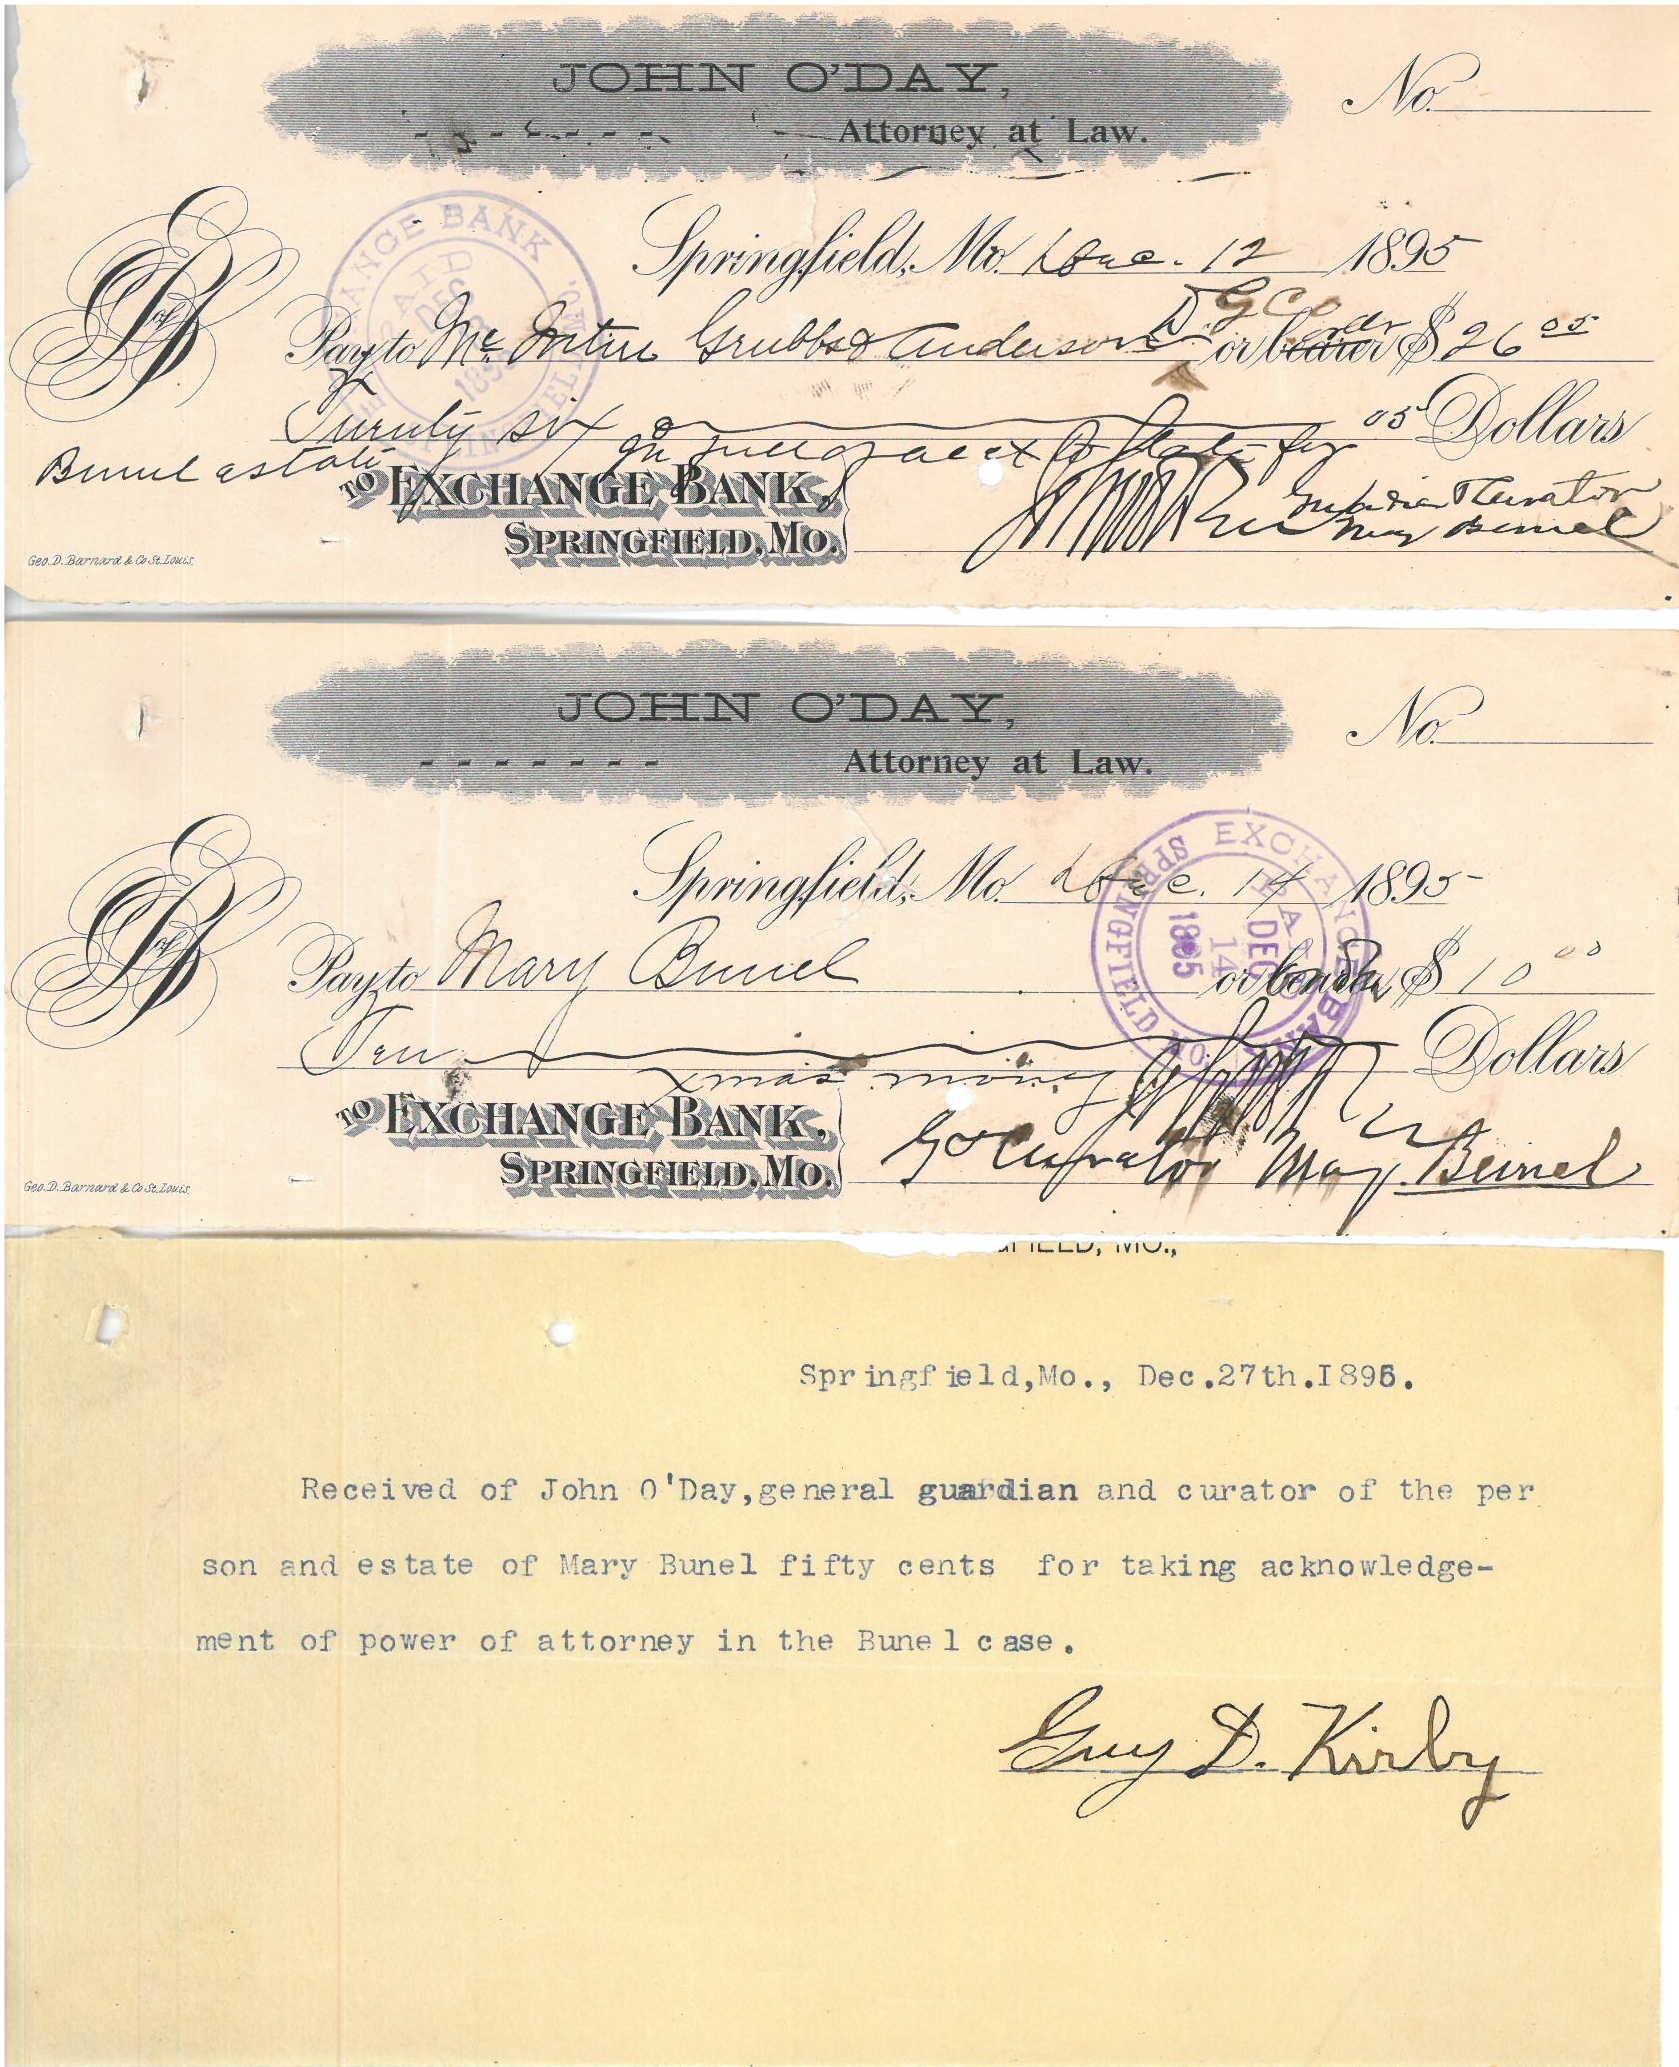 JOHN O'DAY,
Attorney at Law.
No.
EXCHANGE BANK
PAID
DEC
Springfield, Mo. Dec. 12 1895
D G Co
Pay to Mc Intire Grubbs & Anderson or bearer $ 26 05
order
Twenty six 05 Dollars
In full of acct to date for
Bunel estate
TO EXCHANGE BANK,
SPRINGFIELD, MO.
Curator
Mary Bunel
Geo. D. Barnard & Co St. Louis.
JOHN O'DAY,
Attorney at Law.
No.
Springfield, Mo. Dec. 14 1895
EXCHANGE BANK
SPRINGFIELD MO.
PAID
DEC
14
1895
Pay to Mary Bunel or $ 10 00
Ten Dollars
Xmas money
TO EXCHANGE BANK,
SPRINGFIELD, MO.
G & Curator Mary Bunel
Geo. D. Barnard & Co St. Louis.
GFIELD, MO.,
Springfield,Mo., Dec.27th.I895.
Received of John O'Day,general guardian and curator of the per
son and estate of Mary Bunel fifty cents for taking acknowledge-
ment of power of attorney in the Bunel case.
Guy D. Kirby